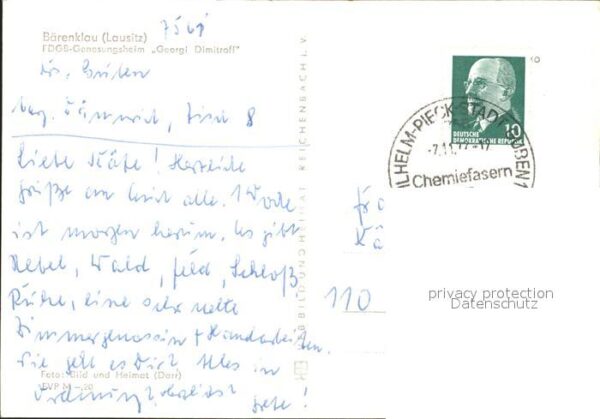 Bärenklau (Lausitz) 7561
FDGB-Genesungsheim „Georgi Dimitroff"
Krs. Guben
Tisch 8
Liebe Käte! Herzliche
Grüße an Euch alle. 1 Woche
ist morgen herum. Es gibt
Nebel, Wald, Feld, Schloß
Ruhe, eine sehr nette
Zimmergenossin + Handarbeiten.
Wie geht es Dir? Alles in
Foto: Bild und Heimat (Darr)
EVP M -,20
Ordnung? Herzlichst
Grete!
VEB BILD UND HEIMAT REICHENBACH I. V.
10
DEUTSCHE
DEMOKRATISCHE REPUBLIK
WILHELM-PIECK-STADT GUBEN 1
Chemiefasern
Fr
Kä
110
privacy protection
Datenschutz